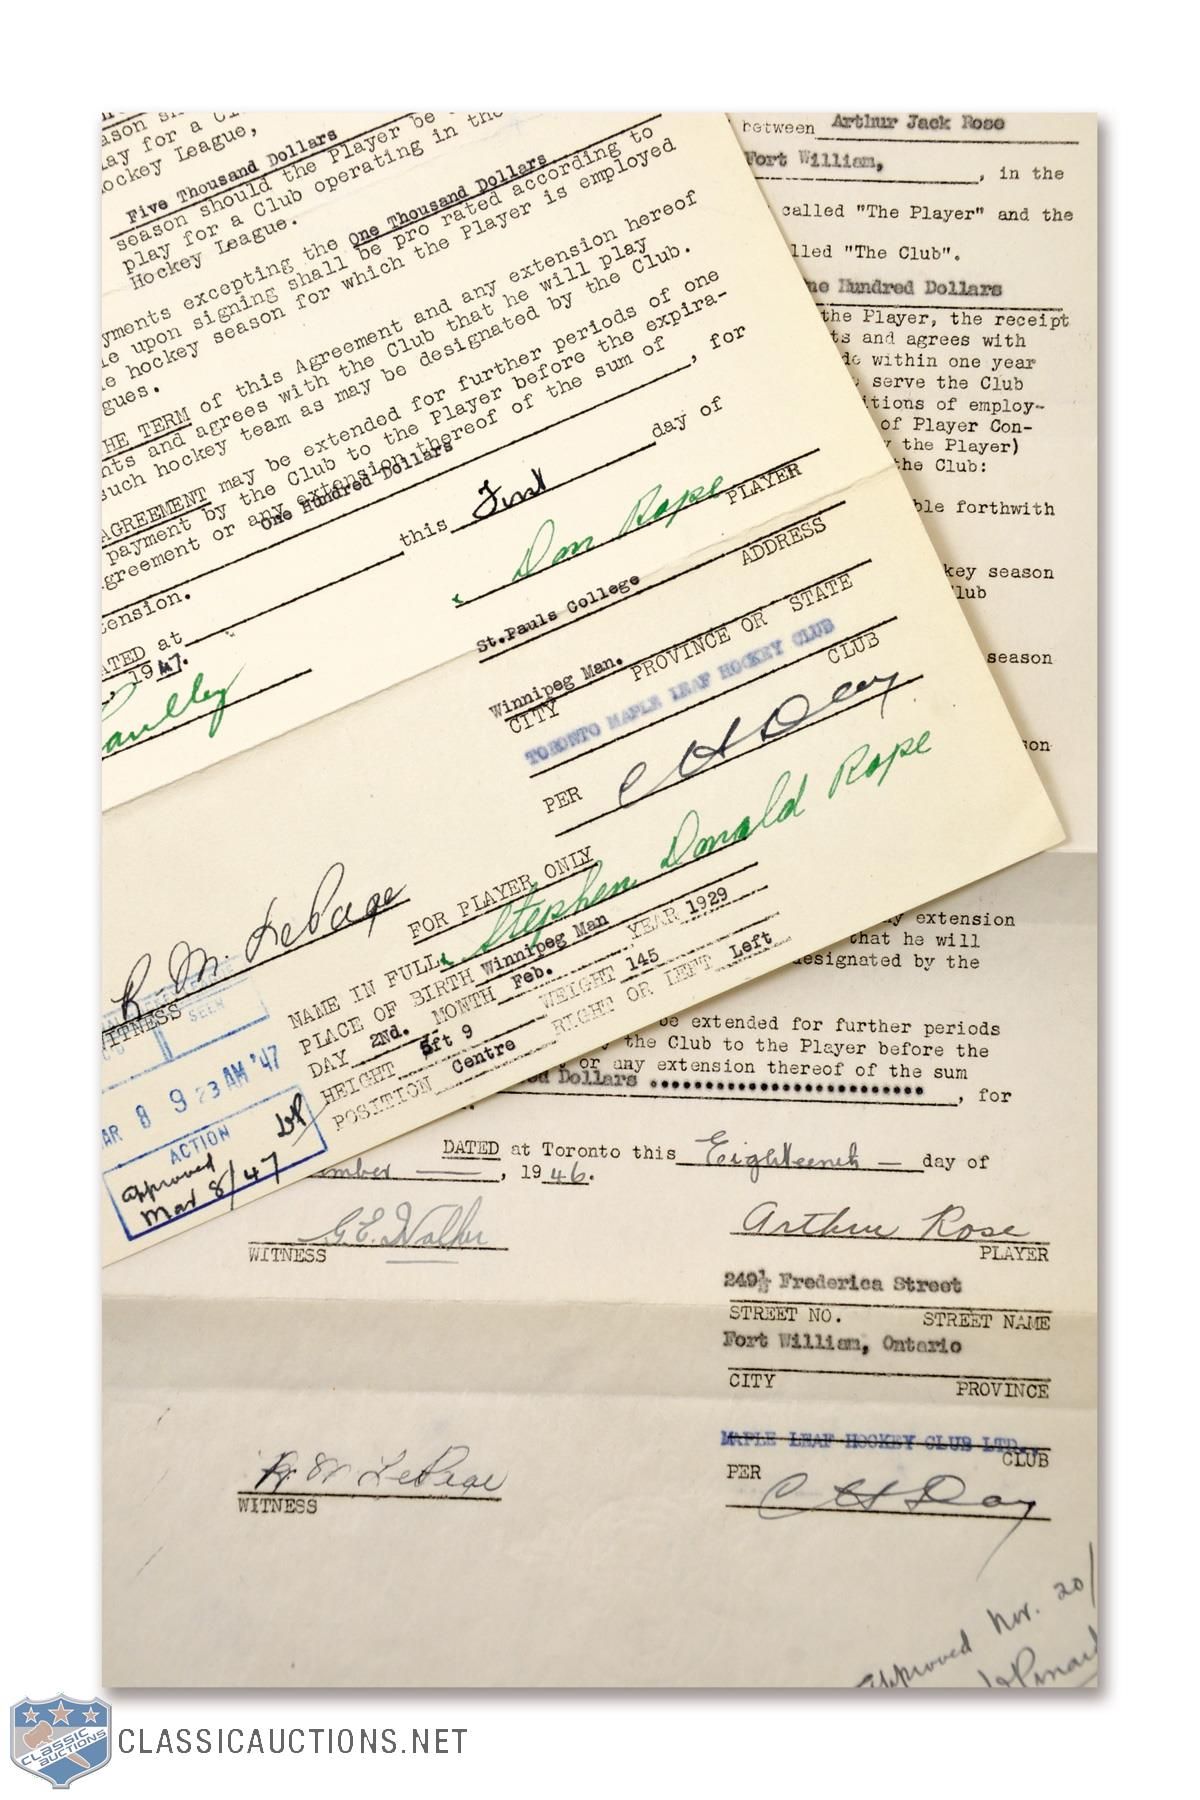 lay for a
ockey League,
Five Thousand Dollars
season should the Player be
play for a Club operating in the
Hockey League.
yments excepting the One Thousand Dollars
le upon signing shall be pro rated according to
e hockey season for which the Player is employed
gues.
THE TERM of this Agreement and any extension hereof
nts and agrees with the Club that he will play
such hockey team as may be designated by the Club.
AGREEMENT may be extended for further periods of one
payment by the Club to the Player before the expira-
greement or any extension thereof of the sum of
One Hundred Dollars , for
tension.
this First day of
ATED at
, 1947.
Don Rope
PLAYER
St.Pauls College
ADDRESS
Winnipeg Man.
CITY PROVINCE OR STATE
TORONTO MAPLE LEAF HOCKEY CLUB
CLUB
PER C H Day
R. M. LePage
WITNESS
FOR PLAYER ONLY
NAME IN FULL Stephen Donald Rope
PLACE OF BIRTH Winnipeg Man
DAY 2Nd. MONTH Feb. YEAR 1929
HEIGHT 5ft 9 WEIGHT 145
POSITION Centre RIGHT OR LEFT Left
SEEN
MAR 8 9 23 AM '47
ACTION
approved
Mar 8/47
between Arthur Jack Rose
Fort William, , in the
called "The Player" and the
lled "The Club".
One Hundred Dollars
the Player, the receipt
ts and agrees with
de within one year
serve the Club
itions of employ-
of Player Con-
y the Player)
the Club:
ble forthwith
key season
lub
season
son
y extension
that he will
designated by the
be extended for further periods
the Club to the Player before the
or any extension thereof of the sum
ed Dollars , for
DATED at Toronto this Eighteenth day of
mber , 1946.
G.E. Walker
WITNESS
Arthur Rose
PLAYER
249½ Frederica Street
STREET NO. STREET NAME
Fort William, Ontario
CITY PROVINCE
MAPLE LEAF HOCKEY CLUB LTD.,
CLUB
R M LePage
WITNESS
PER C H Day
approved Nov. 20/
CLASSIC AUCTIONS
CLASSICAUCTIONS.NET